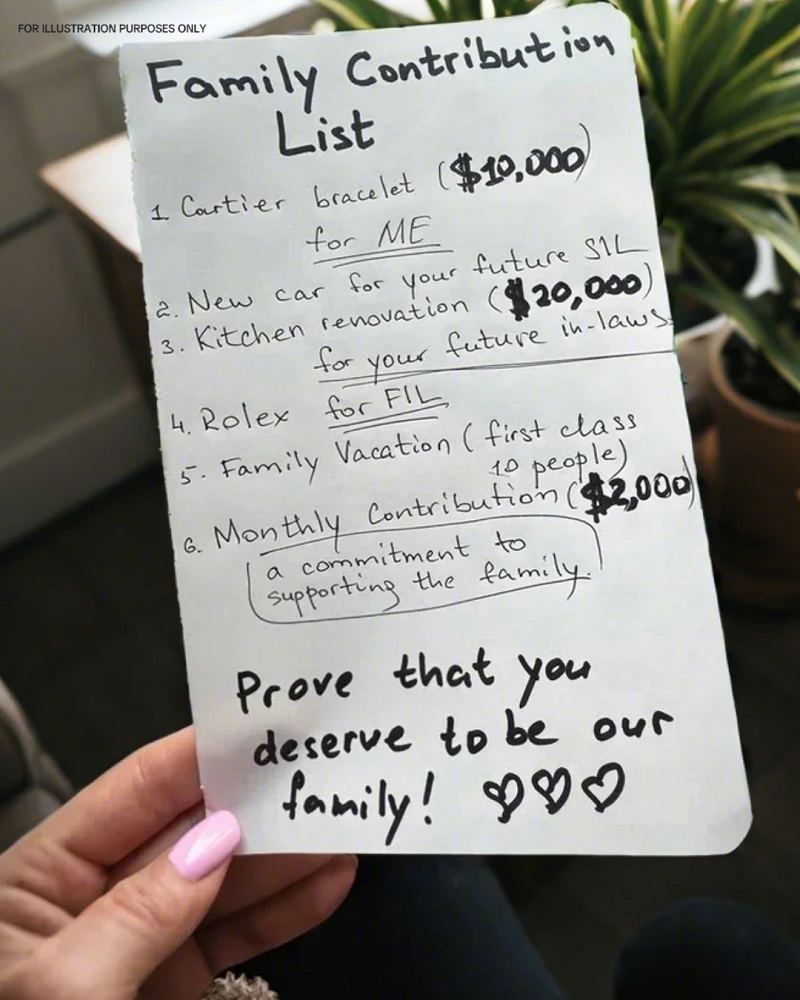 FOR ILLUSTRATION PURPOSES ONLY
Family Contribution
List
1. Cartier bracelet ($10,000)
for ME
2. New car for your future SIL
3. Kitchen renovation ($20,000)
for your future in-laws
4. Rolex for FIL
5. Family Vacation (first class
10 people)
6. Monthly Contribution ($2,000)
a commitment to
supporting the family.
Prove that you
deserve to be our
family! ♡♡♡